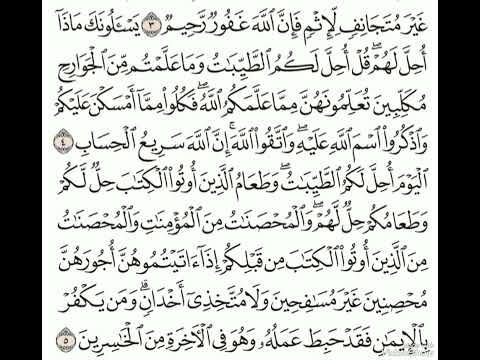 غَيْرَ مُتَجَانِفٍ لِّإِثْمٍ فَإِنَّ ٱللَّهَ غَفُورٌ رَّحِيمٌ ٣ يَسْـَٔلُونَكَ مَاذَآ
أُحِلَّ لَهُمْ ۖ قُلْ أُحِلَّ لَكُمُ ٱلطَّيِّبَـٰتُ وَمَا عَلَّمْتُم مِّنَ ٱلْجَوَارِحِ
مُكَلِّبِينَ تُعَلِّمُونَهُنَّ مِمَّا عَلَّمَكُمُ ٱللَّهُ ۖ فَكُلُوا۟ مِمَّآ أَمْسَكْنَ عَلَيْكُمْ
وَٱذْكُرُوا۟ ٱسْمَ ٱللَّهِ عَلَيْهِ ۖ وَٱتَّقُوا۟ ٱللَّهَ ۚ إِنَّ ٱللَّهَ سَرِيعُ ٱلْحِسَابِ ٤
ٱلْيَوْمَ أُحِلَّ لَكُمُ ٱلطَّيِّبَـٰتُ ۖ وَطَعَامُ ٱلَّذِينَ أُوتُوا۟ ٱلْكِتَـٰبَ حِلٌّ لَّكُمْ
وَطَعَامُكُمْ حِلٌّ لَّهُمْ ۖ وَٱلْمُحْصَنَـٰتُ مِنَ ٱلْمُؤْمِنَـٰتِ وَٱلْمُحْصَنَـٰتُ
مِنَ ٱلَّذِينَ أُوتُوا۟ ٱلْكِتَـٰبَ مِن قَبْلِكُمْ إِذَآ ءَاتَيْتُمُوهُنَّ أُجُورَهُنَّ
مُحْصِنِينَ غَيْرَ مُسَـٰفِحِينَ وَلَا مُتَّخِذِىٓ أَخْدَانٍ ۗ وَمَن يَكْفُرْ
بِٱلْإِيمَـٰنِ فَقَدْ حَبِطَ عَمَلُهُۥ وَهُوَ فِى ٱلْـَٔاخِرَةِ مِنَ ٱلْخَـٰسِرِينَ ٥